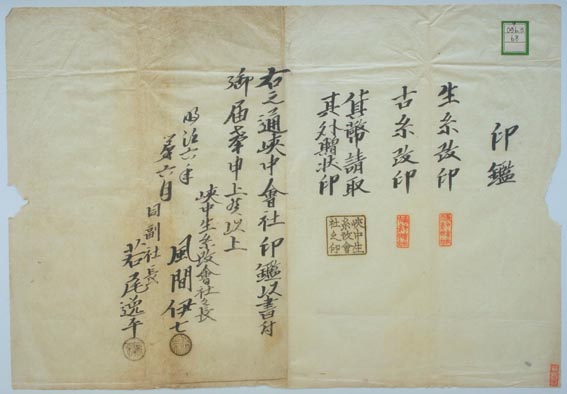 印鑑
生糸改印
古糸改印
貨幣請取
其外賞状印
峡中生
糸改會
社之印
右之通峡中會社印鑑以書付
御届奉申上候以上
峡中生糸改會社々長
風間伊七
明治六年
第六月
同副社長
若尾逸平